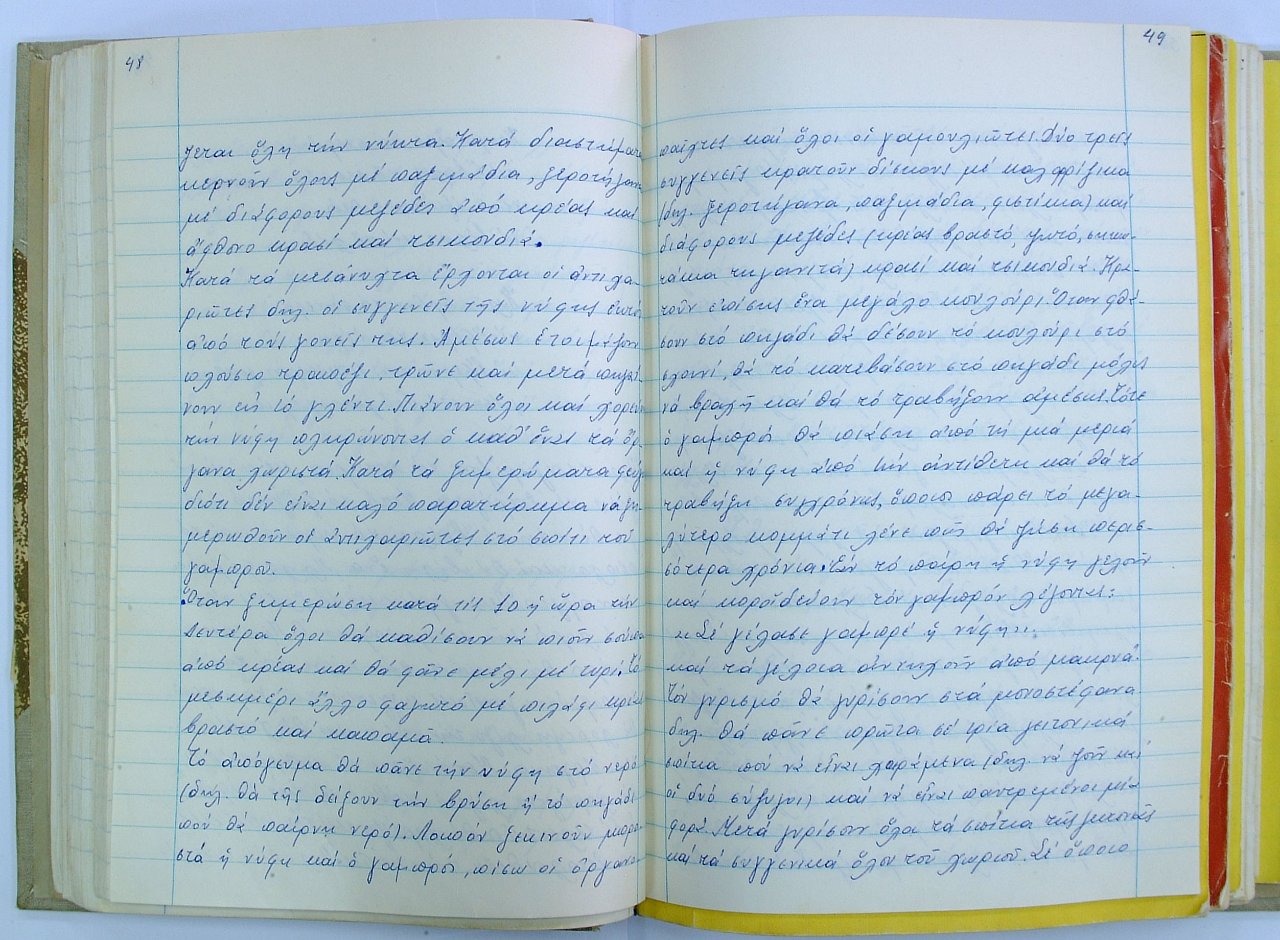 48
ζεται ὅλη τήν νύκτα. Κατά διαστήματα
κερνοῦν ὅλους μέ παξιμάδια, ξεροτήγανα
μέ διάφορους μεζέδες ἀπό κρέας καί
ἄφθονο κρασί καί τσικουδιά.
Κατά τά μεσάνυχτα ἔρχονται οἱ ἀντιχα-
ριῶτες δηλ. οἱ συγγενεῖς τῆς νύφης ἐκτός
ἀπό τούς γονεῖς της. Ἀμέσως ἑτοιμάζουν
πλούσιο τραπέζι, τρῶνε καί μετά πηγαί-
νουν εἰς τό γλέντι. Πιάνουν ὅλοι καί χορεύουν
τήν νύφη πληρώνοντας ὁ καθ' ἕνας τά ὄρ-
γανα χωριστά. Κατά τά ξημερώματα φεύγουν
διότι δέν εἶναι καλό παρατήρημα νά ξη-
μερωθοῦν οἱ ἀντιχαριῶτες στό σπίτι τοῦ
γαμπροῦ.
Ὅταν ξημερώση κατά τίς 10 ἡ ὥρα τήν
Δευτέρα ὅλοι θά καθίσουν νά πιοῦν σούπα
ἀπό κρέας καί θά φᾶνε μέλι μέ τυρί. Τό
μεσημέρι ἄλλο φαγητό μέ πιλάφι κρέας
βραστό καί καπαμᾶ.
Τό ἀπόγευμα θά πᾶνε τήν νύφη στό νερό
(δηλ. θά τῆς δείξουν τήν βρύση ἤ τό πηγάδι
πού θά παίρνη νερό). Λοιπόν ξεκινοῦν μπρο-
στά ἡ νύφη καί ὁ γαμπρός, πίσω οἱ ὀργανο-
49
παῖχτες καί ὅλοι οἱ γαμουλιῶτες. Δύο τρεῖς
συγγενεῖς κρατοῦν δίσκους μέ καλαφρίζικα
(δηλ. ξεροτήγανα, παξιμάδια, φιστίκια) καί
διάφορους μεζέδες (κρέας βραστό, ψητό, συκω-
τάκια τηγανιτά) κρασί καί τσικουδιά. Κρα-
τοῦν ἐπίσης ἕνα μεγάλο κουλούρι. Ὅταν φθά-
σουν στό πηγάδι θά δέσουν τό κουλούρι στό
σχοινί, θά τό κατεβάσουν στό πηγάδι μόλις
νά βραχῆ καί θά τό τραβήξουν ἀμέσως. Τότε
ὁ γαμπρός θά πιάση ἀπό τή μιά μεριά
καί ἡ νύφη ἀπό τήν ἀντίθετη καί θά τό
τραβήξη συγχρόνως, ὅποιος πάρει τό μεγα-
λύτερο κομμάτι λένε πῶς θά ζήση περισ-
σότερα χρόνια. Ἐάν τό πάρη ἡ νύφη γελοῦν
καί κοροϊδεύουν τόν γαμπρόν λέγοντας:
« Σέ γέλασε γαμπρέ ἡ νύφη».
καί τά γέλοια ἀντηχοῦν ἀπό μακρυά.
Τόν γυρισμό θά γυρίσουν στά μονοστέφανα
δηλ. θά πᾶνε πρῶτα σέ τρία γειτονικά
σπίτια πού νά εἶναι χαρούμενα (δηλ. νά ζοῦν καί
οἱ δυό σύζυγοι) καί νά εἶναι παντρεμένοι μιά
φορά. Μετά γυρίσουν ὅλα τά σπίτια τῆς γειτονιᾶς
καί τά συγγενικά ὅλου τοῦ χωριοῦ. Σέ ὅποιο